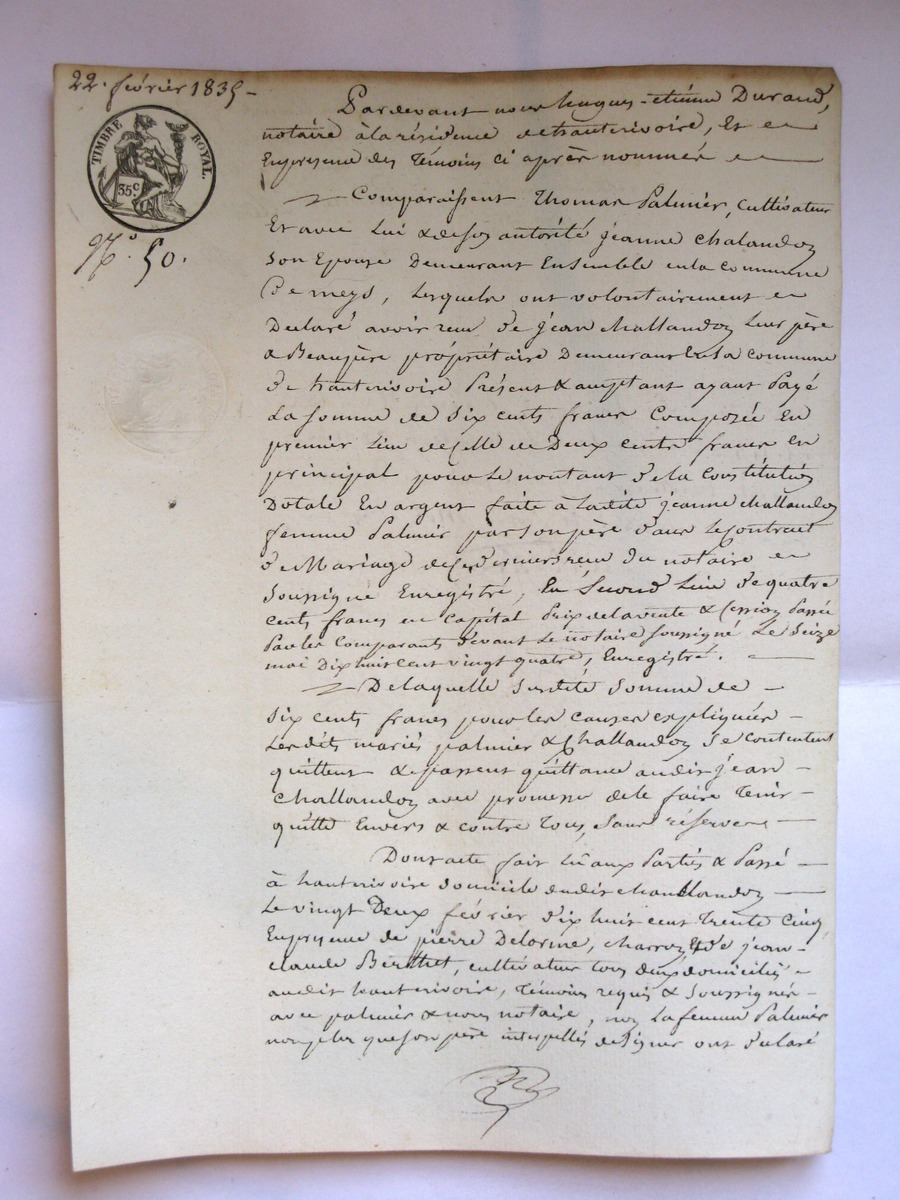 22. février 1835 -
TIMBRE ROYAL.
35 c
N.° 50.
Pardevant nous hugues-étiénne Durand,
notaire à la résidence de hauterivoire, Et en
En présence des témoins ci après nommés
Comparaissent thomas Palmier, cultivateur
Et avec Lui & de son autorité jeanne chalandon
son Epouse Demeurant Ensemble en la commune
De meys, lesquels ont volontairement
Déclaré avoir reçu de jean challandon Leur père
& Beaupère propriétaire Demeurant en la commune
de hauterivoire Présent & acceptant ayant Payé
La somme de six cents francs Composée En
premier Lieu de Celle de Deux cents francs en
principal pour Le montant de la Constitution
Dotale En argent faite à Ladite jeanne challandon
femme Palmier par son père dans le Contrat
de Mariage de ces derniers reçu du notaire
soussigné Enregistré, En Second Lieu de quatre
cents francs en capital Prix de la vente & Cession Passée
Par les Comparants devant Le notaire soussigné Le Seize
mai Dix huit cent vingt quatre, Enregistré.
De laquelle susdite somme de -
six cents francs pour les causes expliquées -
Les dits mariés palmier & Challandon se contentent
quittent & passent quittance audit jean -
challandon avec promesse de le faire tenir -
quitte Envers & contre tous, sans réserves -
Dont acte fait Lu aux Parties & Passé -
à hauterivoire domicile dudit challandon
Le vingt Deux février dix huit cent trente cinq
En présence de pierre Delorme, charron & de jean-
claude Berthet, cultivateur tous deux domiciliés -
audit hauterivoire, témoins requis & soussignés -
avec palmier & nous notaire, non La femme Palmier
non plus que son père interpellés de signer ont déclaré